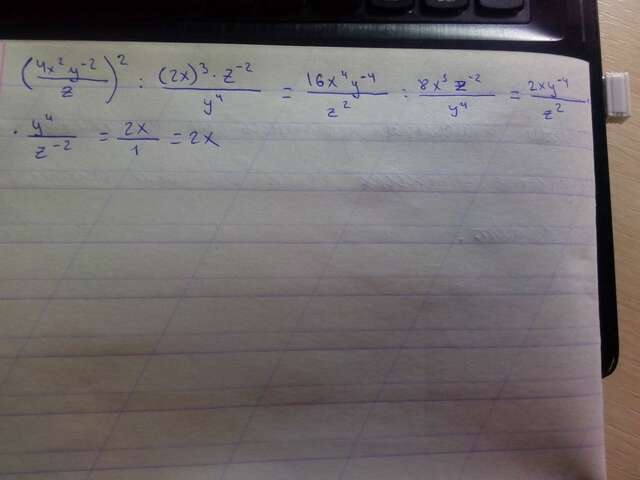 (4x²y⁻²/z)² : (2x)³ · z⁻²/y⁴ = 16x⁴y⁻⁴/z² : 8x³z⁻²/y⁴ = 2xy⁻⁴/z² ·
· y⁴/z⁻² = 2x/1 = 2x